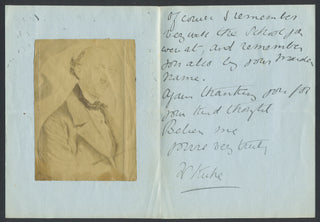 of course I remember
very well the School you
were at, and remember
you also by your Maiden
Name.
Again thanking you for
your kind thought
Believe me
yours very truly
W Kuhe